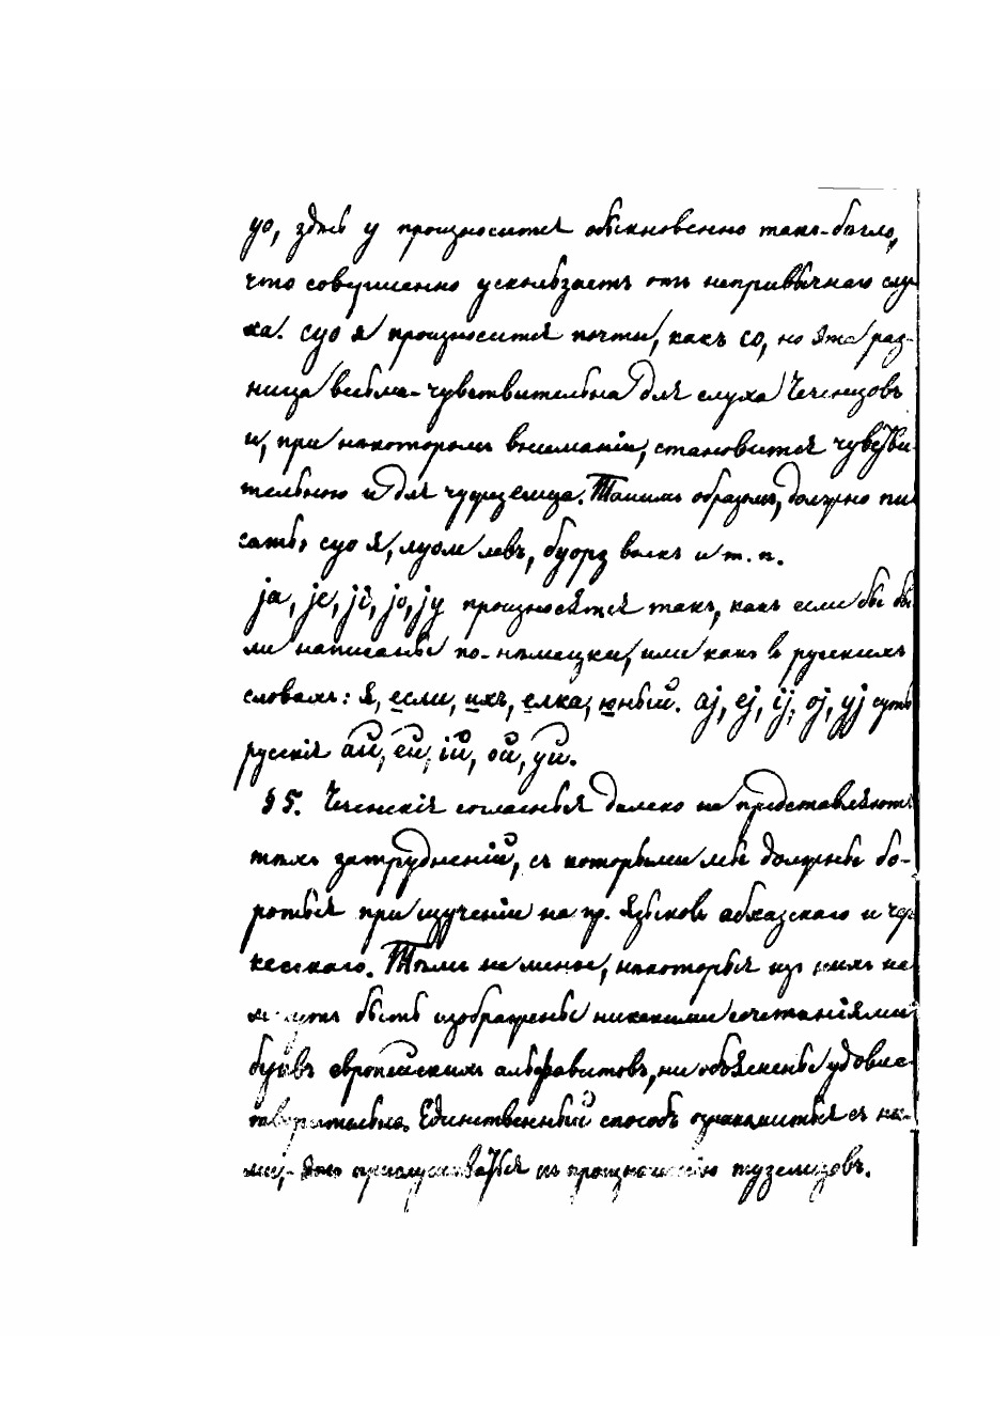 уо, здѣсь у произносится обыкновенно такъ бѣгло,
что совершенно ускользаетъ отъ непривычнаго слу-
ха. суо я произносится почти, какъ со, но эта раз-
ница весьма чувствительна для слуха Чеченцовъ
и, при некоторомъ вниманіи, становится чувстви-
тельною и для чужеземца. Такимъ образомъ, должно пи-
сать, суо я, луом левъ, буорз волкъ и т. п.
ја, је, јі, јо, ју произносятся такъ, какъ если бы бы-
ли написаны по-нѣмецки, или какъ въ русскихъ
словахъ: я, если, ихъ, елка, юный. ај, еј, іј, ој, уј суть
русскія ай, ей, ій, ой, уй.
§ 5. Чеченскія согласныя далеко не представляютъ
тѣхъ затрудненій, съ которыми мы должны бо-
роться при изученіи на пр. языковъ абхазскаго и чер-
кесскаго. Тѣмъ не менѣе, некоторыя изъ нихъ не
могутъ быть изображены никакими сочетаніями
буквъ европейскихъ альфавитовъ, ни объяснены удовле-
творительно. Единственный способъ ознакомиться съ ни-
ми, это прислушиваться къ произношенію туземцовъ.